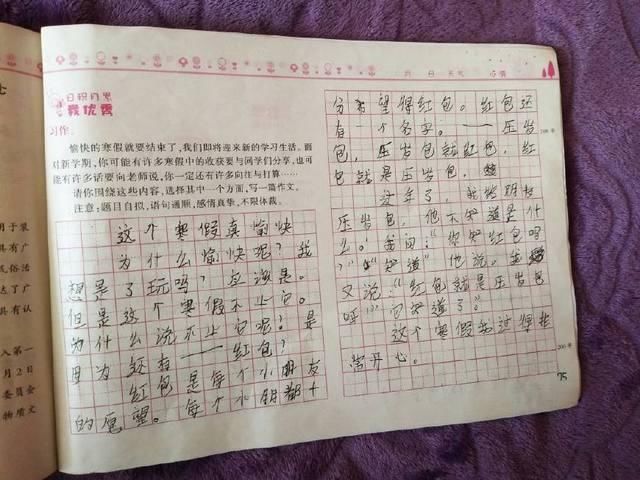 日积月累
我优秀
习作:
愉快的寒假就要结束了,我们即将迎来新的学习生活。面
对新学期,你可能有许多寒假中的收获要与同学们分享,也可
能有许多话要向老师说,你一定还有许多向往与打算……
请你围绕这些内容,选择其中一个方面,写一篇作文。
注意:题目自拟,语句通顺,感情真挚,不限体裁。
这个寒假真愉快
为什么愉快呢?我
想是了玩吗?应该是。
但是这个寒假不止它。
为什么说不止它呢?是
因为还有——红包?
红包是每个小朋友
的愿望。每个小朋都十
分希望得红包。红包还
有一个名字。——压岁
包,压岁包就红包,红
包就是压岁包,
这年了,我给
压岁包,他不知道是什
么。我问:“你知红包吗
?”“知道”他说。我
又说:“红包就是压岁包
呼”“它知道了。”
这个寒假我过得非
常开心。
月 日 天气 心情
100
200
75
用于装
具有广
民俗活
达了广
具有认
入第一
月2日
委员会
物质文